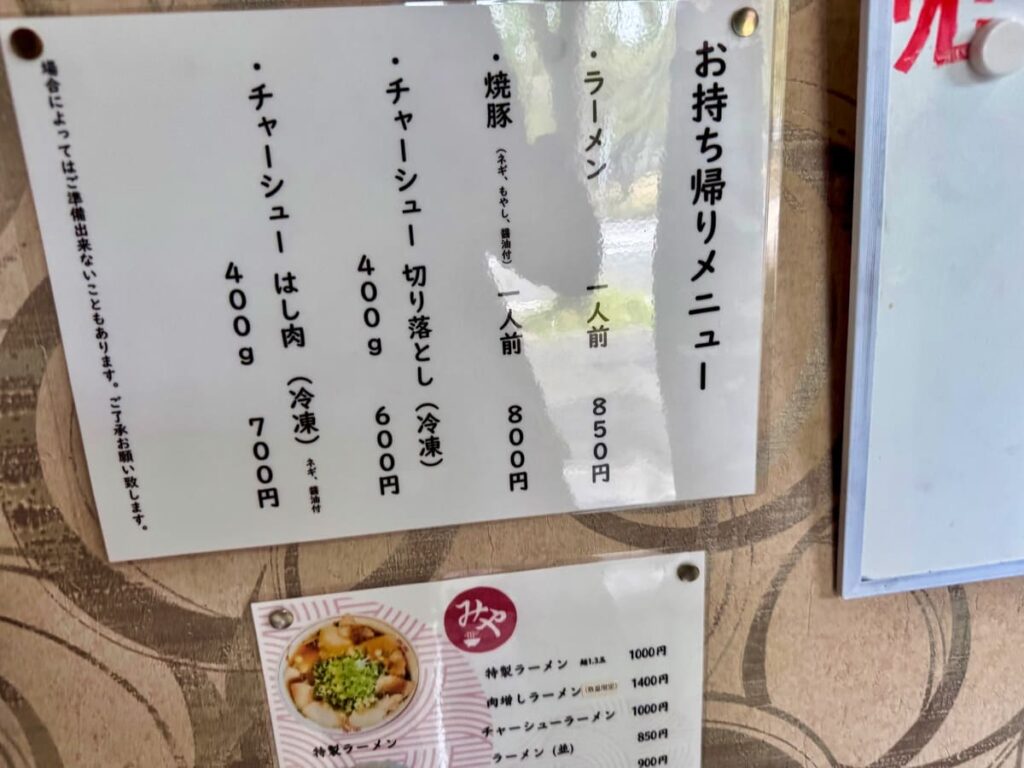 お持ち帰りメニュー
・ラーメン 一人前 850円
・焼豚（ネギ、もやし、醤油付）一人前 800円
・チャーシュー 切り落とし（冷凍）
400g 600円
・チャーシュー はし肉（冷凍）ネギ、醤油付
400g 700円
場合によってはご準備出来ないこともあります。ご了承お願い致します。
みや
特製ラーメン 麺1.3玉 1000円
肉増しラーメン（数量限定） 1400円
チャーシューラーメン 1000円
ラーメン（並） 850円
900円
特製ラーメン